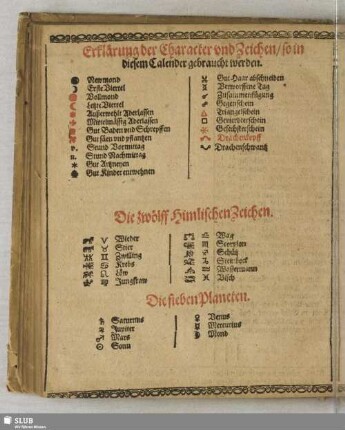 Erklärung der Character vnd Zeichen / so in
diesem Calender gebraucht werden.
Newmond
Erste Viertel
Vollmond
Letzte Viertel
Außerwehlt Aderlassen
Mittelmässig Aderlassen
Gut Baden vnd Schrepffen
Gut säen vnd pflantzen
v. Stund Vormittag
n. Stund Nachmittag
Gut Artzneyen
Gut Kinder entwehnen
Gut Haar abschneiden
Verworffene Tag
Zusammenfügung
Gegenschein
Triangelschein
Gevierterschein
Gesechsterschein
Drachenkopff
Drachenschwantz
Die zwölff Himlischen Zeichen.
♈ Wieder
♉ Stier
♊ Zwilling
♋ Krebs
♌ Löw
♍ Jungfraw
♎ Wag
♏ Scorpion
♐ Schütz
♑ Steinbock
♒ Wasserman
♓ Visch
Die sieben Planeten.
♄ Saturnus
♃ Jupiter
♂ Mars
☉ Sonn
♀ Venus
☿ Mercurius
☽ Mond
SLUB
Wir führen Wissen.